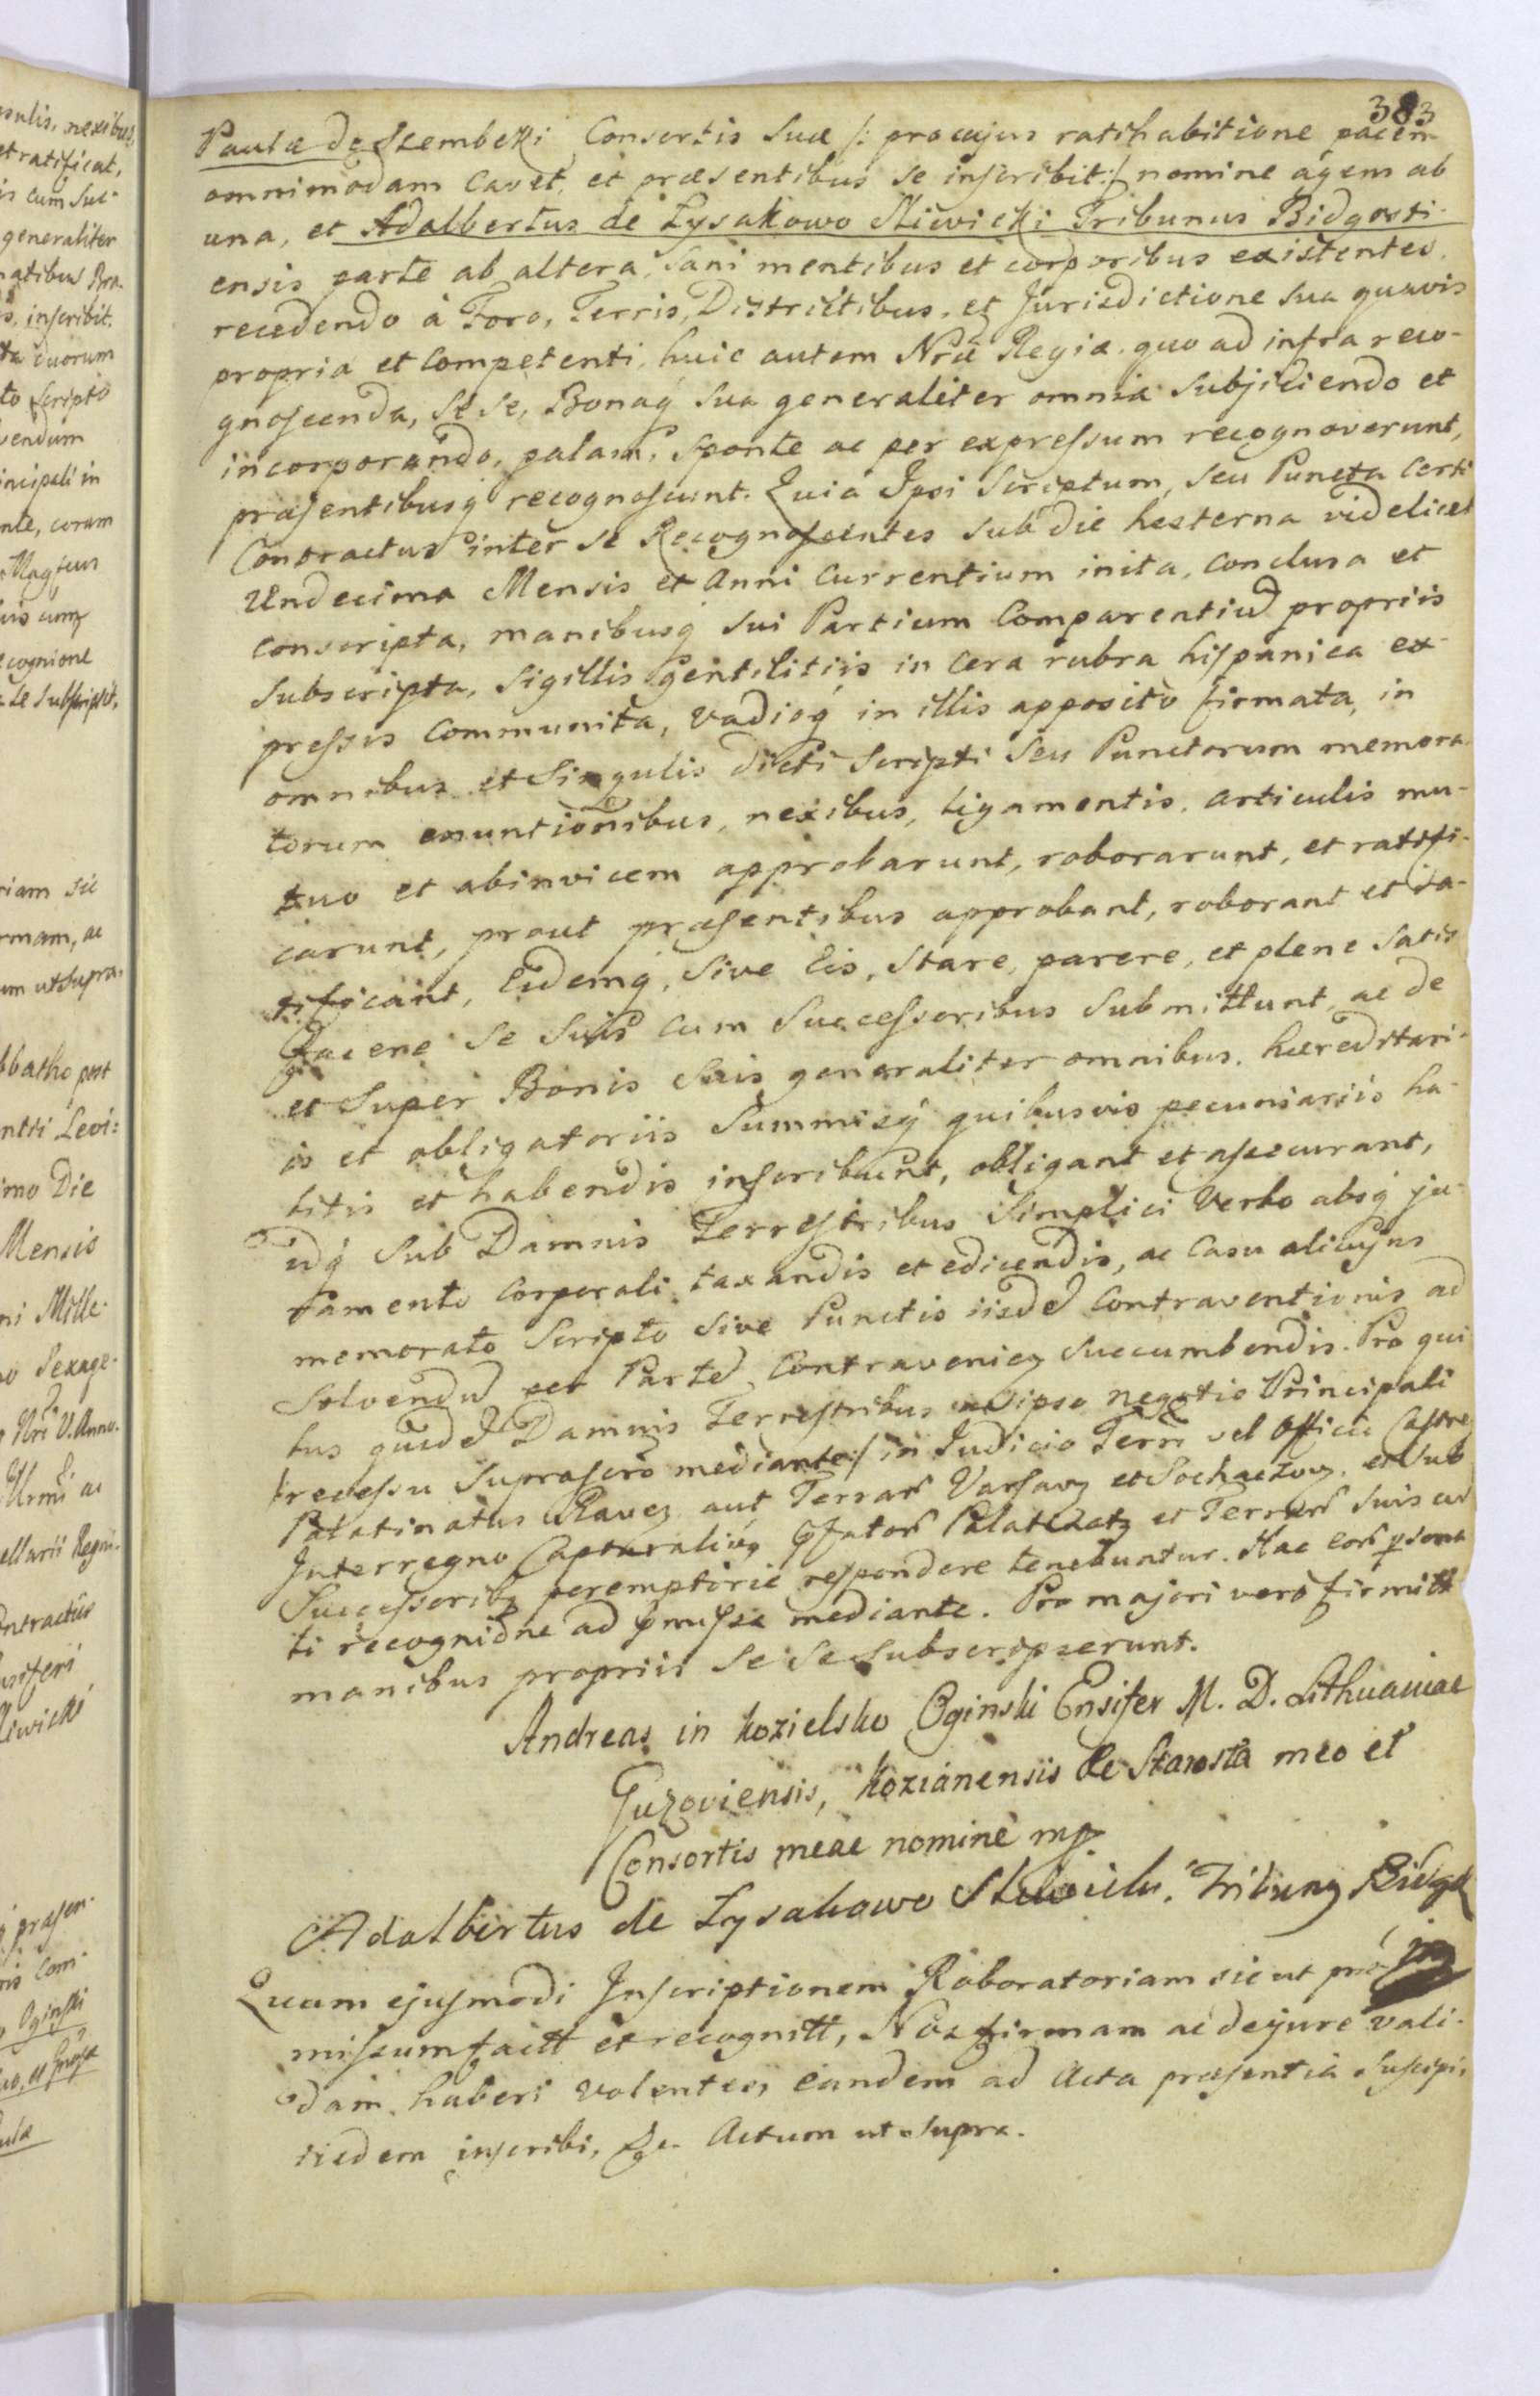 383
Paulæ de Szembeki Consortis Suæ /: pro cujus ratihabitione pacem
omnimodam cavet, et præsentibus se inscribit :/ nomine agens ab
una, et Adalbertus de Lysakowo Sliwicki Tribunus Bidgosti-
ensis parte ab altera, Sani mentibus et corporibus existentes,
recedendo à Foro, Terris, Districtibus, et Jurisdictione sua quavis
propria et competenti, huic autem Nræ Regiæ quo ad infra reco-
gnoscenda, sese, Bonaq́ sua generaliter omnia subjiciendo et
incorporando, palam, sponte ac per expressum recognoverunt,
præsentibusq́ recognoscunt. Quia Ipsi Scriptum, seu Puncta Certi
Contractus inter se Recognoscentes sub die hesterna videlicet
Undecima Mensis et Anni Currentium inita, conclusa et
conscripta, manibusq́ sui Partium Comparentiu propriis
subscripta, sigillis gentilitiis in cera rubra hispanica ex-
pressis communita, vadioq́ in illis apposito firmata, in
omnibus et Singulis dicti Scripti seu Punctorum memora-
torum enuntionibus, nexibus, ligamentis, articulis mu-
tuo et abinvicem approbarunt, roborarunt, et ratifi-
carunt, prout præsentibus approbant, roborant et ra-
tificant, Eidemq́, sive Eis, stare, parere, et plene satis
facere se suis cum Successoribus submittunt, ac de
et super Bonis suis generaliter omnibus, hæreditari-
is et obligatoriis Summisq́ quibusvis pecuniariis ha-
bitis et habendis inscribunt, obligant et assecurant,
idq́ sub Damnis Terrestribus simplici Verbo absq́ ju-
ramento corporali taxandis et edicendis, ac Casu alicujus
memorato Scripto sive Punctis iisdē contraventionis ad
solvendū per Partē Contravenien succumbendis. Pro qui
bus quidē Damnis Terrestribus ipso negotio Principali
/recessu suprascrō mediante/ in Judicio Terri vel Officii Castre
Palatinatus Raven aut Terrar Varsav et Sochaczov, et sub
Interregno Capturaliq́ pfator Palatinat et Terrar suis cū
Successorib peremptorie respondere tenebuntur. Hac eor psona
li recognione ad pmissa mediante. Pro majori vero firmitt
manibus propriis se se subscripserunt.
Andreas in Kozielsko Oginski Ensifer M. D. Lithuaniae
Guzoviensis, Kozianensis &c Starosta meo et
Consortis meae nomine mp
Adalbertus de Lysakowo Sliwicki Tribung Bidg
Quam ejusmodi Inscriptionem Roboratoriam sicut præ
missum factt et recognitt, Nos firmam ac de jure vali-
dam haberi volentes, eandem ad Acta præsentia suscipi,
iisdem inscribi, &c. Actum ut supra.